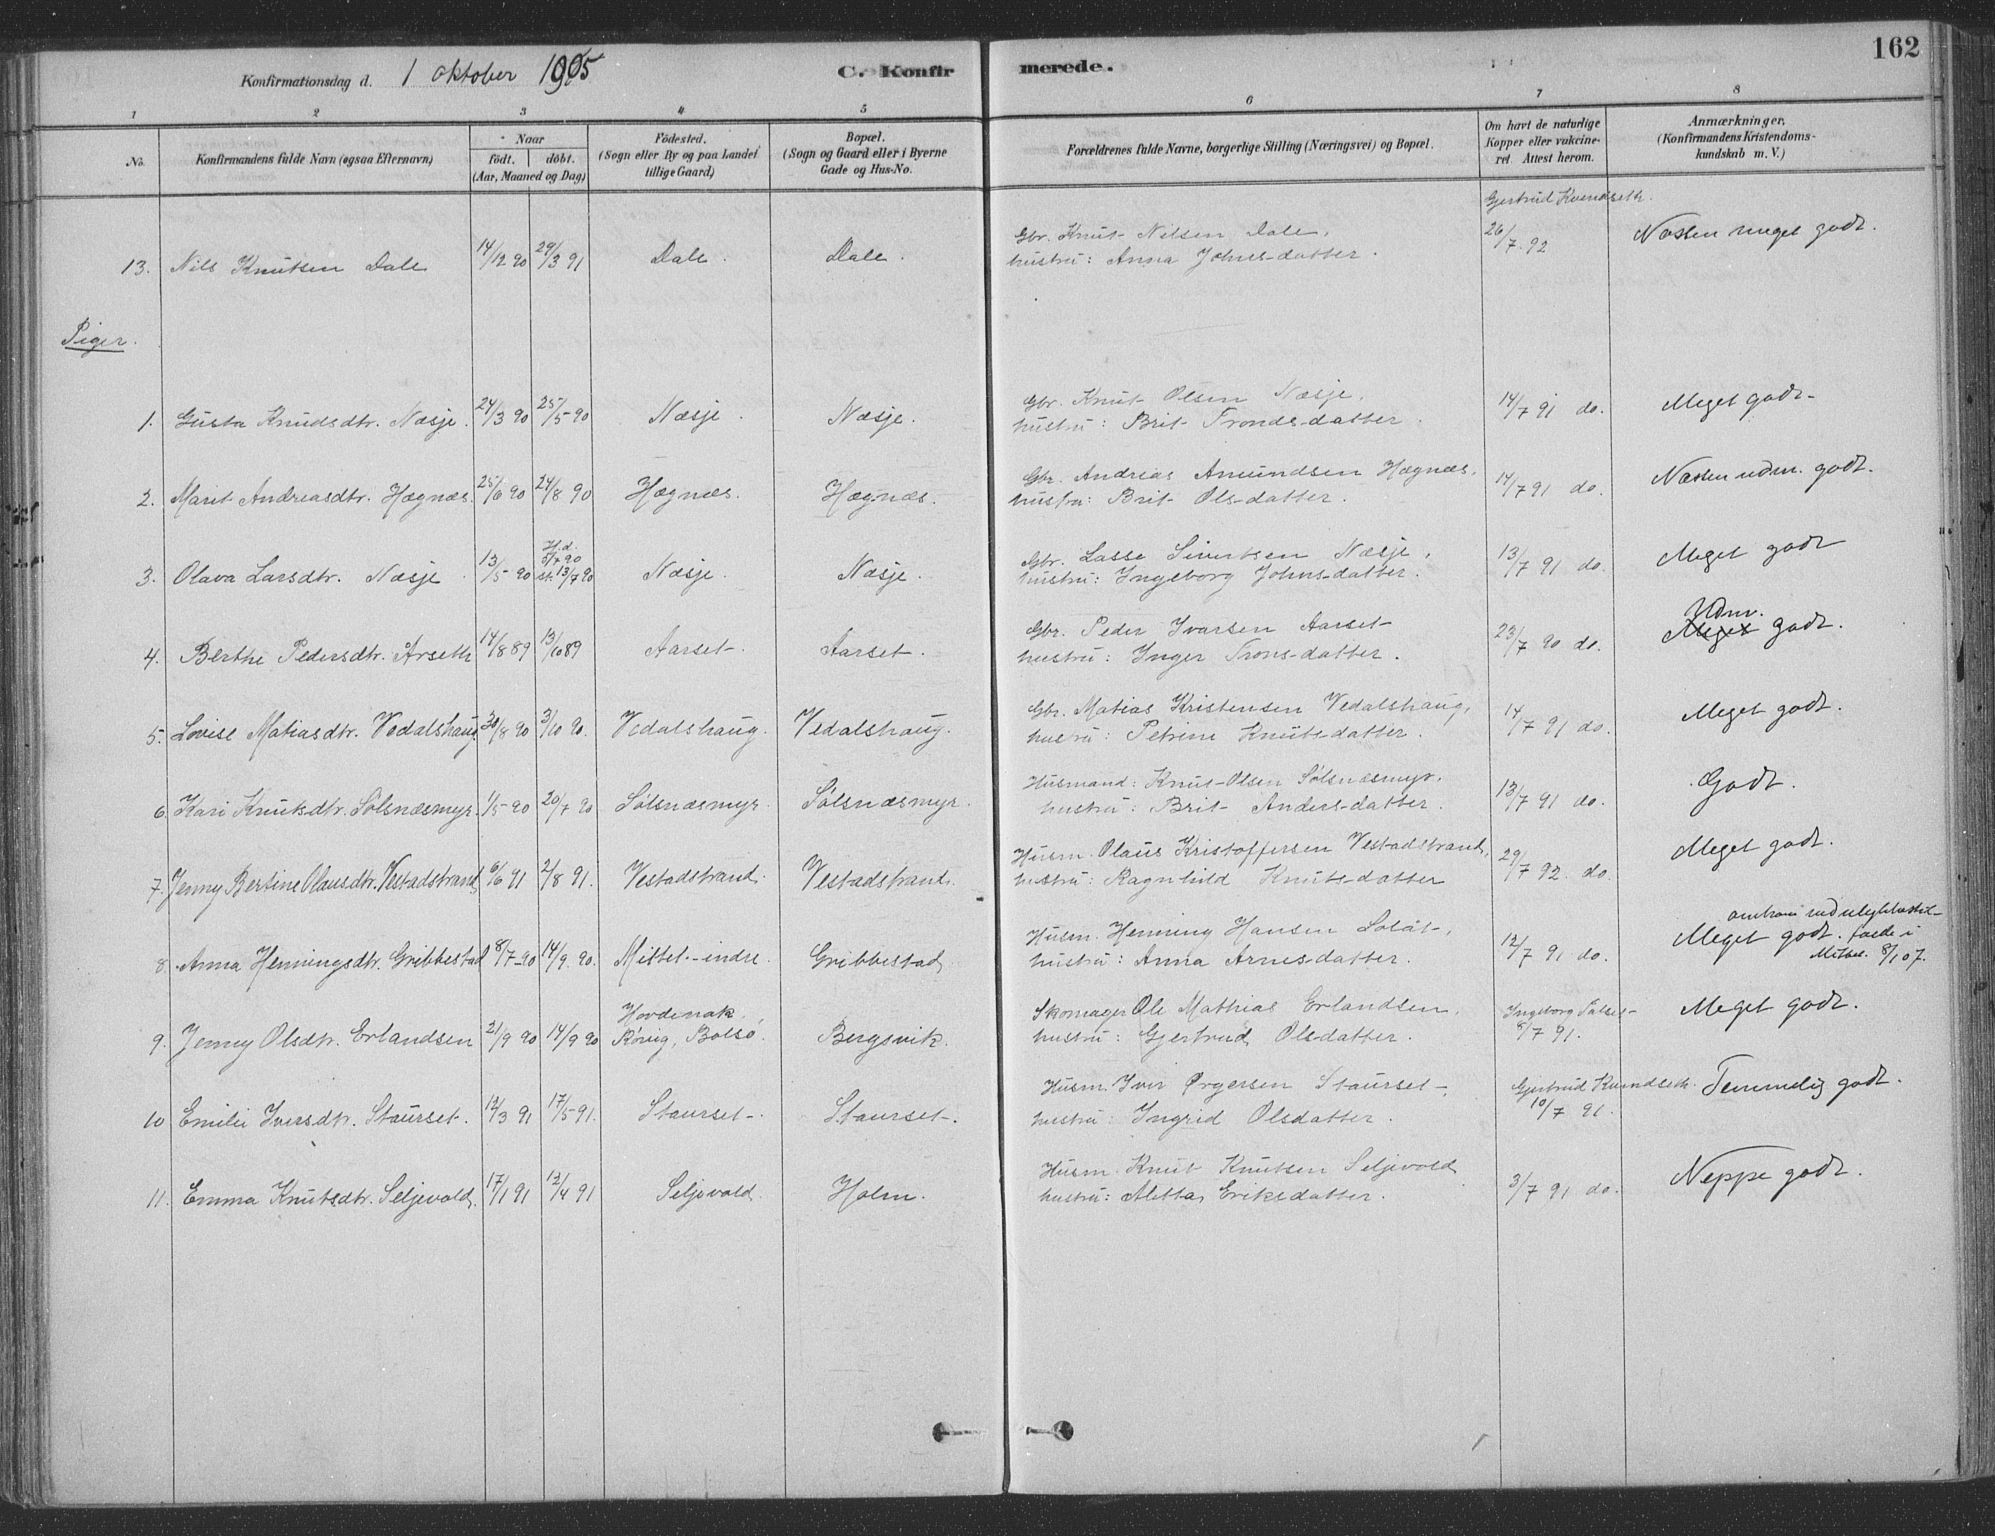 162
Konfirmationsdag d. 1 oktober 1905 C. Konfirmerede.
1 2 3 4 5 6 7 8
No. Konfirmandens fulde Navn (ogsaa Efternavn) Naar födt. döbt. (Aar, Maaned og Dag) Födested. (Sogn eller By og paa Landet tillige Gaard) Bopæl. (Sogn og Gaard eller i Byerne Gade og Hus-No. Forældrenes fulde Navne, borgerlige Stilling (Næringsvei) og Bopæl. Om havt de naturlige Kopper eller vakcineret. Attest herom. Anmærkninger. (Konfirmandens Kristendomskundskab m. V.)
Gjertrud Kvendseth.
13. Nils Knutsen Dale 14/12 90 29/3 91 Dale. Dale. Gbr. Knut Nilsen Dale, 26/7. 92 Næsten meget godt.
hustru: Anna Johnsdatter.
Piger.
1. Gusta Knudsdtr. Næsje. 24/3 90 25/5-90 Næsje. Næsje. Gbr. Knut Olsen Næsje, 14/7 91 do. Meget godt-
hustru: Brit Tronds-datter.
2. Marit Andreasdtr. Hægnæs. 25/6 90 24/8 90 Hægnæs. Hægnæs. Gbr. Andreas Amundsen Hægnæs, 14/7 91 do. Næsten udm. godt.
hustru: Brit Ols-datter.
3. Olava Larsdtr. Næsje. 13/5-90 Hj.d. 5/7 90 st. 13/7 90 Næsje. Næsje. Gbr. Lasse Sivertsen Næsje, 13/7 91 do. Meget godt
hustru: Ingeborg Johns-datter.
4. Berthe Pedersdtr. Arseth 14/8 89 13/10 89 Aarset. Aarset. Gbr. Peder Ivarsen Aarset- 23/7 90 do. Udm. Meget godt.
hustru: Inger Trons-datter.
5. Lovise Matiasdtr. Vedalshaug 30/8 90 3/10 90. Vedalshaug. Vedalshaug. Gbr. Matias Kristensen Vedalshaug, 14/7 91 do. Meget godt.
hustru: Petrine Knuts-datter.
6. Kari Knutsdtr. Sölsnæsmyr. 1/5-90 20/7 90 Sölsnæsmyr. Sölsnæsmyr. Husmand: Knut Olsen Sölsnæsmyr. 13/7 91 do. Godt.
hustru: Brit Anders-datter.
7. Jenny Bertine Olausdtr. Vestadstrand 6/6 91 2/8 91. Vestadstrand. Vestadstrand. Husm. Olaus Kristoffersen Vestadstrand, 29/7 92. do. Meget godt.
hustru: Ragnhild Knuts-datter
8. Anna Henningsdtr. Gribbestad 8/7-90 14/9. 90. Mittet-indre. Gribbestad. Husm. Henning Hansen 12/7 91 do. Meget godt. omkom ved i Mittet. 8/1 07.
hustru: Anna Arnes-datter.
9. Jenny Olsdtr. Erlandsen 21/9 90 14/9 90 Hovdenak, Bolsö. Bergsvik. Skomager Ole Mathias Erlandsen. Ingeborg 8/7 91. Meget godt.
hustru: Gjertrud Olsdatter.
10 Emilie Iversdtr. Staurset. 12/3 91 17/5-91. Staurset-. Staurset-. Husm. Iver Staurset-, Gjertrud Kvendseth. 10/7 91. Temmelig godt.
hustru: Ingrid Olsdatter.
11. Emma Knutsdtr. Seljevold. 17/1 91 12/4 91 Seljevold Holm. Husm. Knut Knutsen Seljevold 3/7 91 do. Neppe godt.
hustru: Aletta Eriksdatter.